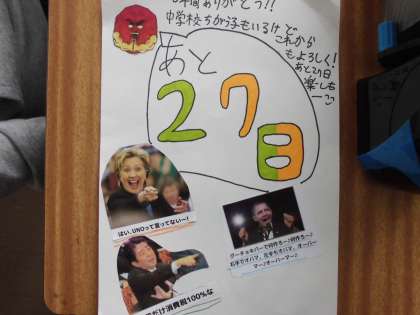 6年間ありがとう!!
中学校ちがう子もいるけど
これから
もよろしく!
あと27日
楽しも
ー
あと
27日
はい、UNOって言ってない〜!
だけ消費税100%な
グーチョキパーで何作ろ〜♪何作ろ〜♪
右手でオバマ、左手もオバマ、オーバー
マー♪オーバーマー♪